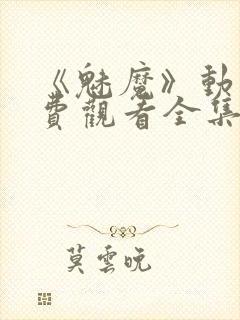 《魅魔》動
費觀看全集
莫雲晚